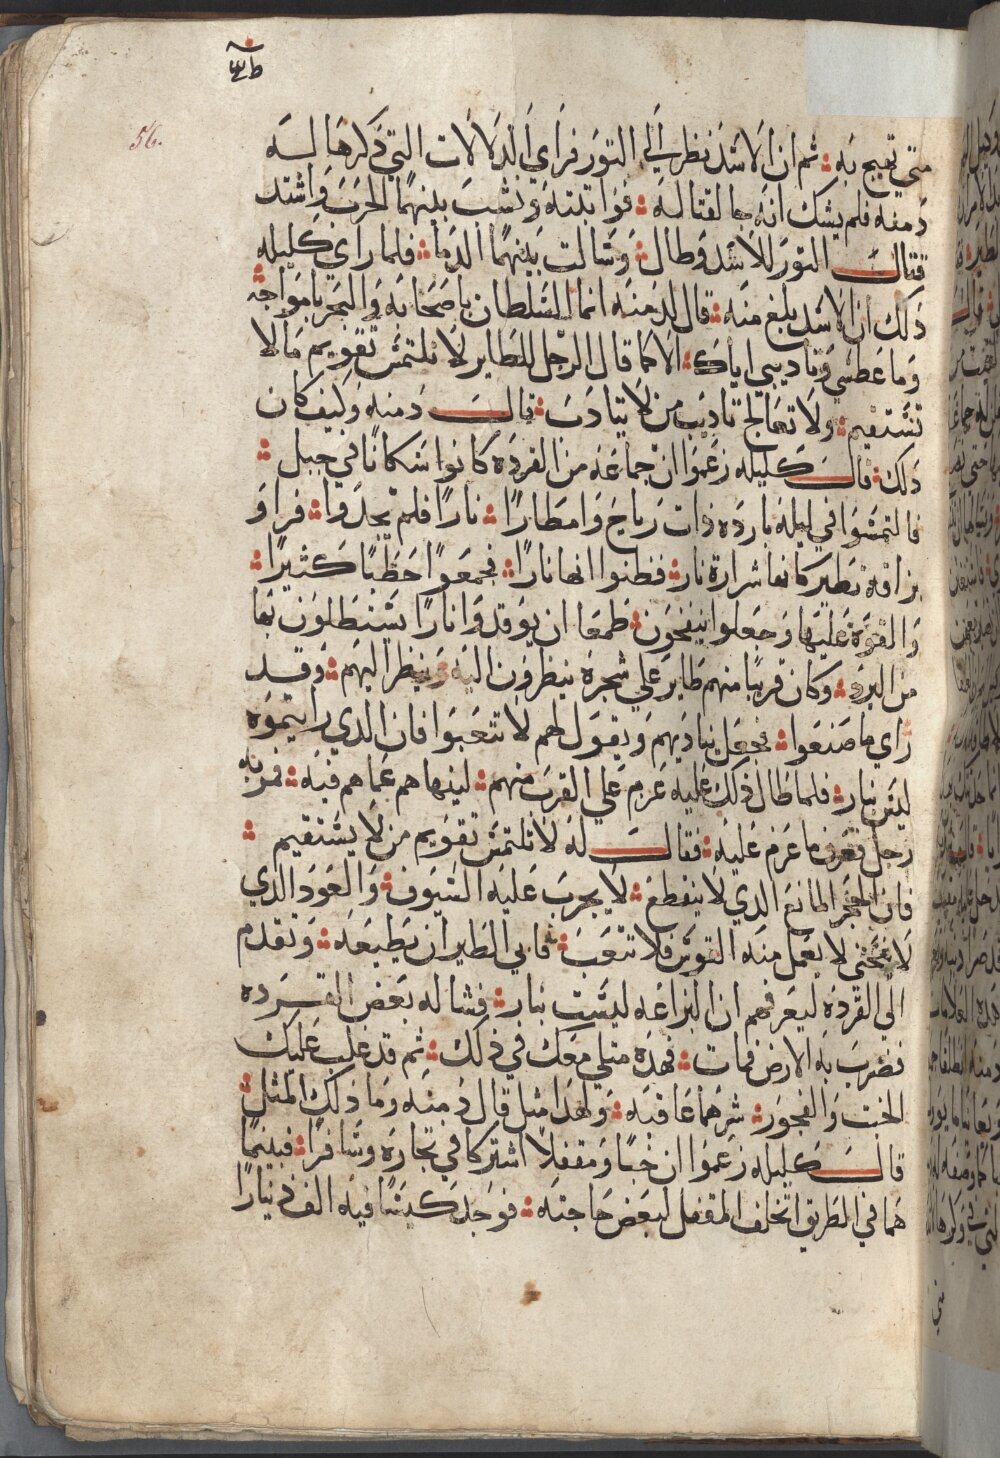 56.
متي تهيج به ؞ ثم ان الاسد نظر الي التور فراي الدلالات التي ذكرها له
دمنه فلم يشك انه جا لقتاله ؞ فواتبته ونشب بينهما الحرب واشتد
قتال التور للاسد وطال ؞ وسالت بينهما الدما ؞ فلما راي كليله
ذلك ان الاسد بلغ منه ؞ قال لدمنه انما السلطان باصحابه والبحر بامواجه ؞
وما عطسي وتاديبي اياك ؞ الا كما قال الرجل للطاير لا تلتمس تقويم ما لا
تستقيم ؞ ولا تعالج تاديب من لا يتادب ؞ قال دمنه وكيف كان
ذلك ؞ قال كليله زعموا ان جماعه من القرده كانوا سكانا في جبل ؞
فالتمسوا في ليله بارده ذات رياح وامطارا ؞ نارا فلم يجدوا ؞ فراو
يراعه تطير كانها شرارة نار ؞ فظنوا انها نارا ؞ فجمعوا حطبا كثيرا ؞
والقوه عليها وجعلوا ينفخون ؞ طمعا ان يوقدوا نارا يسطلون بها
من البرد ؞ وكان قريبا منهم طاير علي شجره ينظرون اليه وينظر اليهم ؞ وقد
راي ما صنعوا ؞ فجعل يناديهم ويقول لهم لا تتعبوا فان الدي رايتموه
ليس بنار ؞ فلما طال ذلك عليه عزم علي القرب منهم ؞ لينهاهم عما هم فيه ؞ فمر به
رجل فعرف ما عزم عليه ؞ فقال له لا تلتمس تقويم من لا يستقيم ؞
فان الحجر المانع الدي لا ينقطع ؞ لا يجرب عليه السيوف ؞ والعود الدي
لا ينحني لا يعمل منه القوس فلا تتعب ؞ فابي الطير ان يطيعه ؞ وتقدم
الي القرده ليعرفهم ان اليراعه ليست بنار ؞ فشاله بعض القرده
فضرب به الارض فمات ؞ فهده متلي معك في ذلك ؞ ثم قد غلب عليك
الخب والفجور ؞ شرهما عاقبه ؞ ولهدا مثل قال دمنه وما ذلك المثل ؞
قال كليله زعموا ان خبا ومغفلا اشتركا في تجاره وسافرا ؞ فبينما
هما في الطريق اتخلف المغفل لبعض حاجته ؞ فوجد كيسا فيه الف دينارا